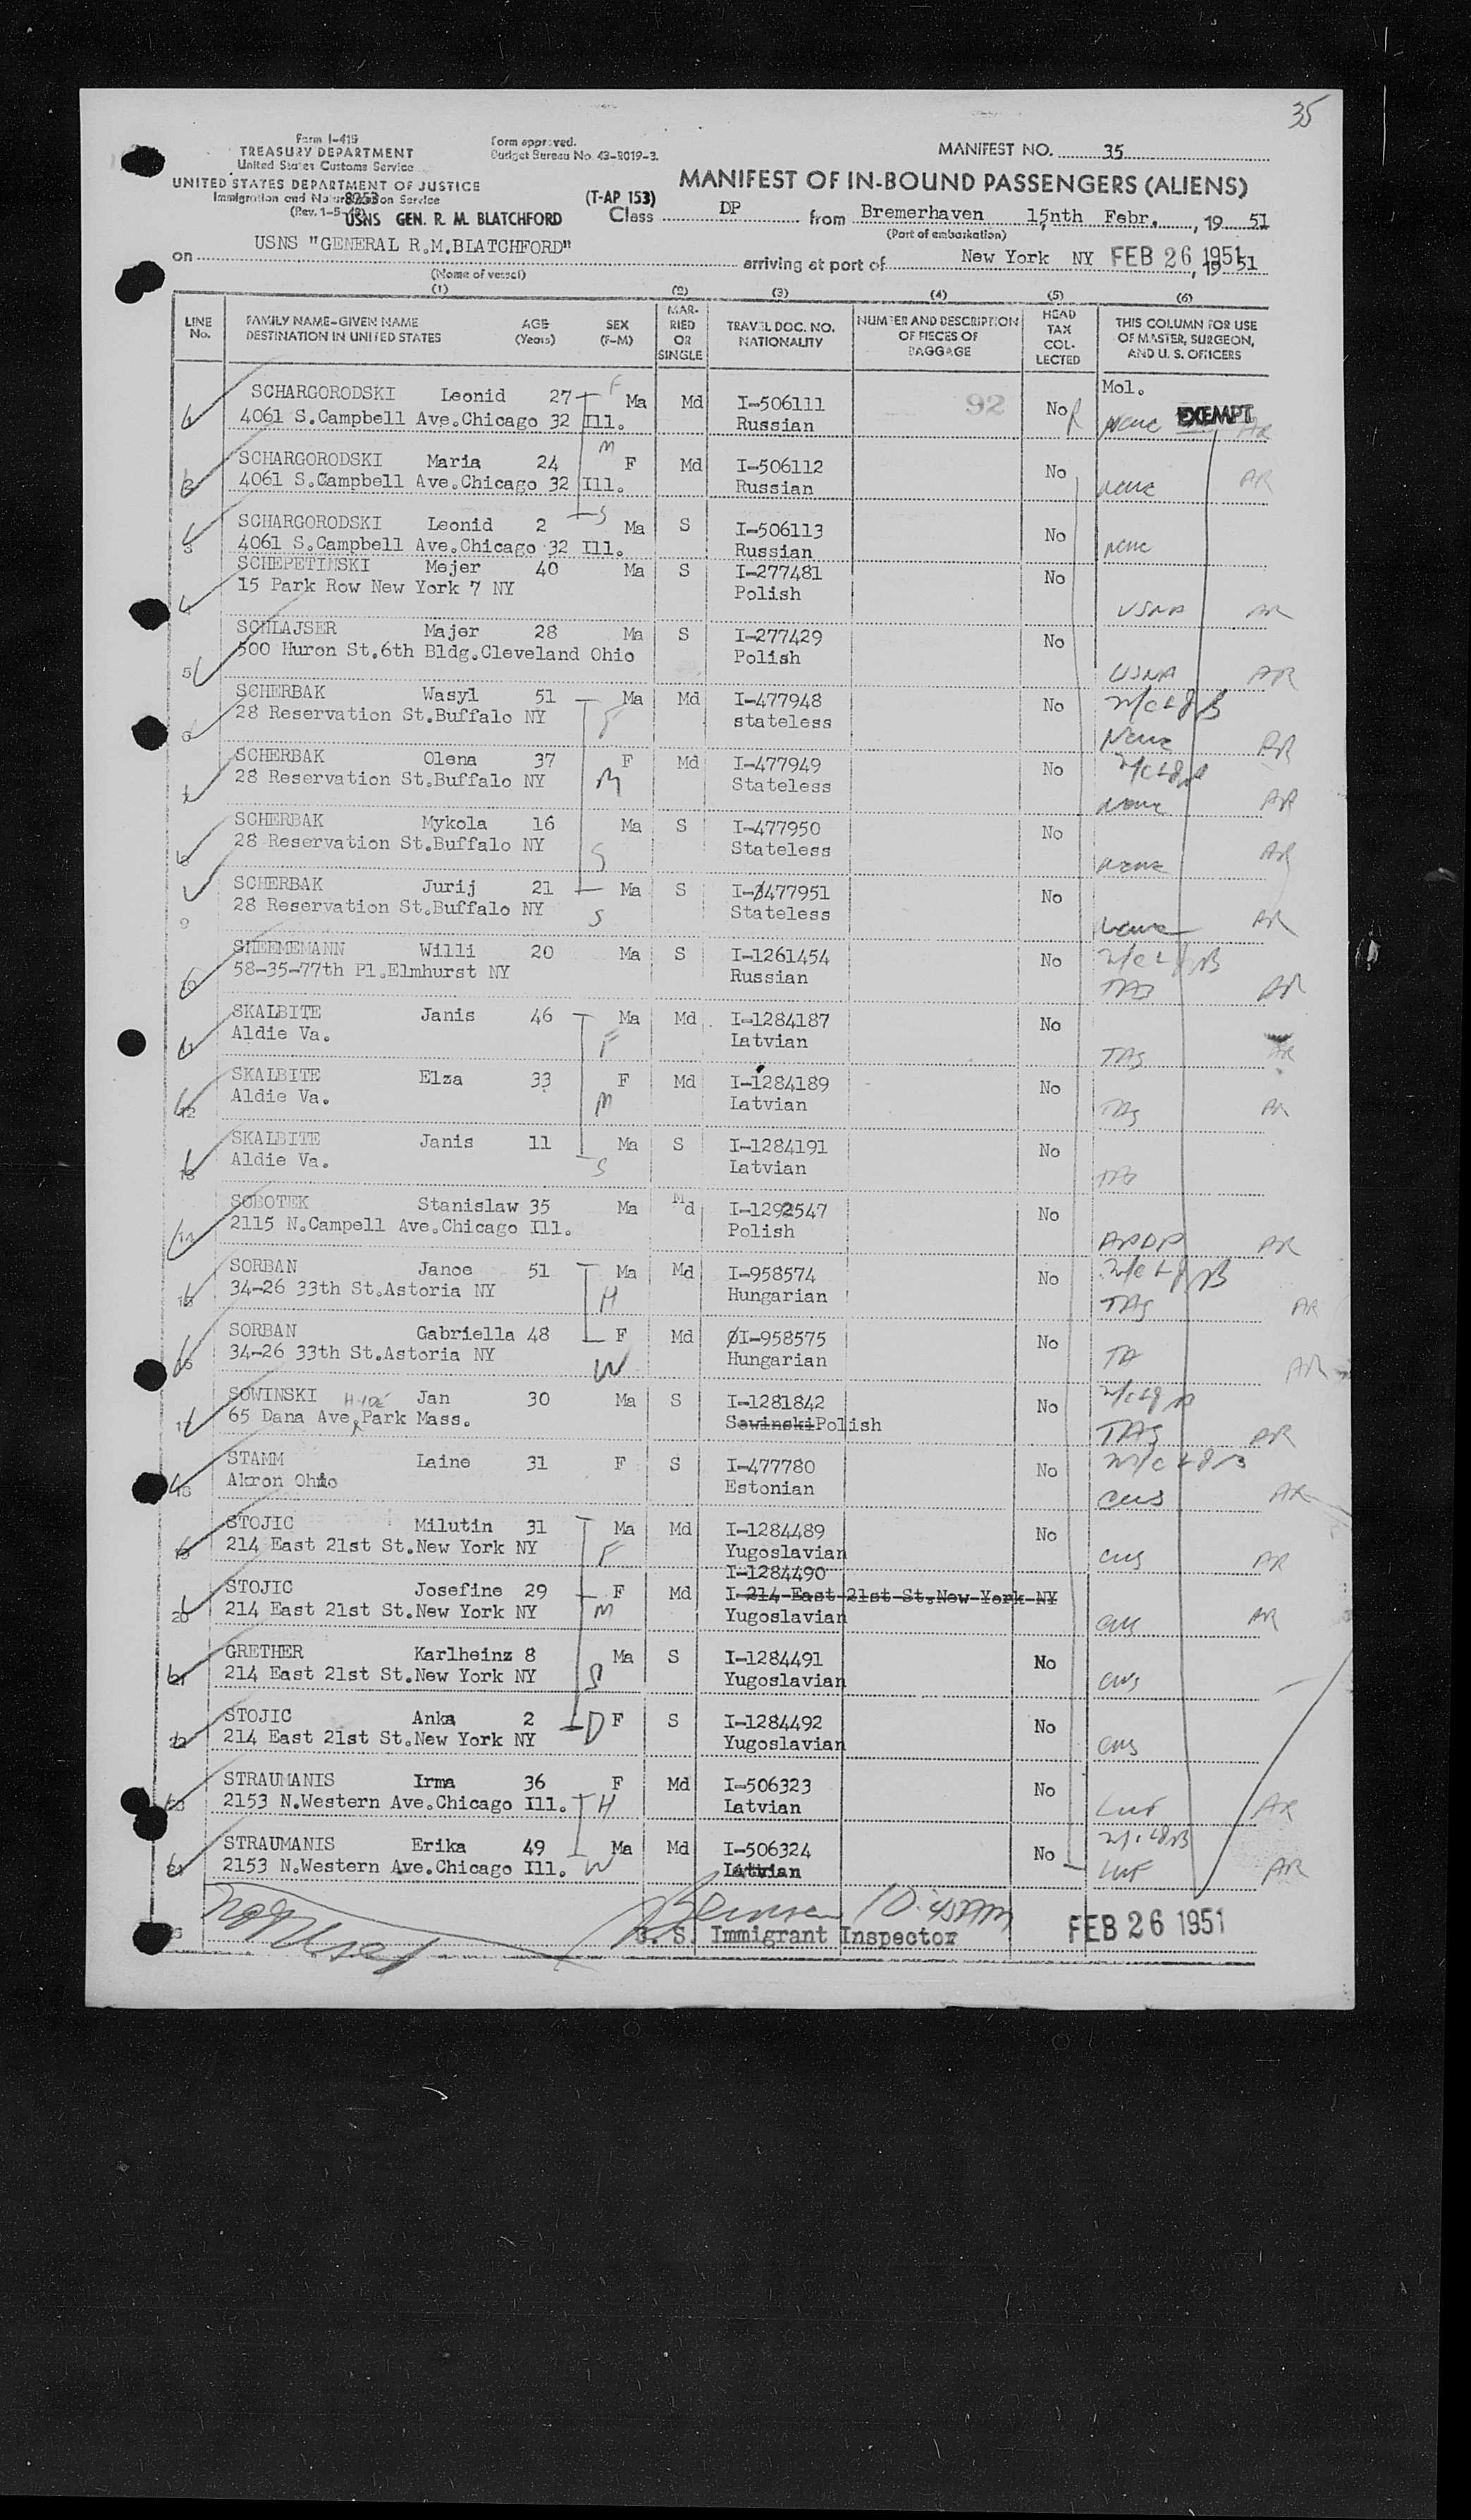 35
Form I-415
TREASURY DEPARTMENT
United States Customs Service
UNITED STATES DEPARTMENT OF JUSTICE
Immigration and Naturalization Service
(Rev. 1-5-49)
8253
USNS GEN. R. M. BLATCHFORD
Form approved.
Budget Bureau No. 43-R019-3.
MANIFEST NO. 35
MANIFEST OF IN-BOUND PASSENGERS (ALIENS)
(T-AP 153)
Class DP from Bremerhaven 15nth Febr., 19 51
(Port of embarkation)
on USNS "GENERAL R.M.BLATCHFORD" arriving at port of New York NY FEB 26 1951, 1951
(Name of vessel)
(1) (2) (3) (4) (5) (6)
LINE No. FAMILY NAME-GIVEN NAME DESTINATION IN UNITED STATES AGE (Years) SEX (F-M) MARRIED OR SINGLE TRAVEL DOC. NO. NATIONALITY NUMBER AND DESCRIPTION OF PIECES OF BAGGAGE HEAD TAX COLLECTED THIS COLUMN FOR USE OF MASTER, SURGEON, AND U. S. OFFICERS
Mol.
1 SCHARGORODSKI Leonid 27 F Ma Md I-506111 92 No
4061 S.Campbell Ave.Chicago 32 Ill. Russian None EXEMPT AR
2 SCHARGORODSKI Maria 24 M F Md I-506112 No
4061 S.Campbell Ave.Chicago 32 Ill. Russian None AR
3 SCHARGORODSKI Leonid 2 S Ma S I-506113 No
4061 S.Campbell Ave.Chicago 32 Ill. Russian None
4 SCHEPETINSKI Mejer 40 Ma S I-277481 No
15 Park Row New York 7 NY Polish USNA AR
5 SCHLAJSER Majer 28 Ma S I-277429 No
500 Huron St.6th Bldg.Cleveland Ohio Polish USNA AR
6 SCHERBAK Wasyl 51 Ma Md I-477948 No
28 Reservation St.Buffalo NY F stateless None AR
7 SCHERBAK Olena 37 F Md I-477949 No
28 Reservation St.Buffalo NY M Stateless None AR
8 SCHERBAK Mykola 16 Ma S I-477950 No
28 Reservation St.Buffalo NY S Stateless None AR
9 SCHERBAK Jurij 21 Ma S I-3477951 No
28 Reservation St.Buffalo NY S Stateless None AR
10 SHEEMEMANN Willi 20 Ma S I-1261454 No
58-35-77th Pl.Elmhurst NY Russian AR
11 SKALBITE Janis 46 Ma Md I-1284187 No
Aldie Va. F Latvian TAS AR
12 SKALBITE Elza 33 F Md I-1284189 No
Aldie Va. M Latvian TAS AR
13 SKALBITE Janis 11 Ma S I-1284191 No
Aldie Va. S Latvian
14 SOBOTEK Stanislaw 35 Ma Md I-1292547 No
2115 N.Campell Ave.Chicago Ill. Polish APDP AR
15 SORBAN Janoe 51 Ma Md I-958574 No
34-26 33th St.Astoria NY H Hungarian TAS AR
16 SORBAN Gabriella 48 F Md ØI-958575 No
34-26 33th St.Astoria NY W Hungarian TA AR
17 SOWINSKI Jan 30 Ma S I-1281842 No
65 Dana Ave. Park Mass. Sowinski Polish TAS AR
18 STAMM Laine 31 F S I-477780 No
Akron Ohio Estonian CWS AR
19 STOJIC Milutin 31 Ma Md I-1284489 No
214 East 21st St.New York NY F Yugoslavian CWS AR
I-1284490
20 STOJIC Josefine 29 F Md I-214-East-21st-St.New-York-NY
214 East 21st St.New York NY M Yugoslavian CWS AR
21 GRETHER Karlheinz 8 Ma S I-1284491 No
214 East 21st St.New York NY S Yugoslavian CWS
22 STOJIC Anka 2 D F S I-1284492 No
214 East 21st St.New York NY Yugoslavian CWS
23 STRAUMANIS Irma 36 F Md I-506323 No
2153 N.Western Ave.Chicago Ill. H Latvian LWF AR
24 STRAUMANIS Erika 49 Ma Md I-506324 No
2153 N.Western Ave.Chicago Ill. W Latvian LWF AR
U. S. Immigrant Inspector
FEB 26 1951